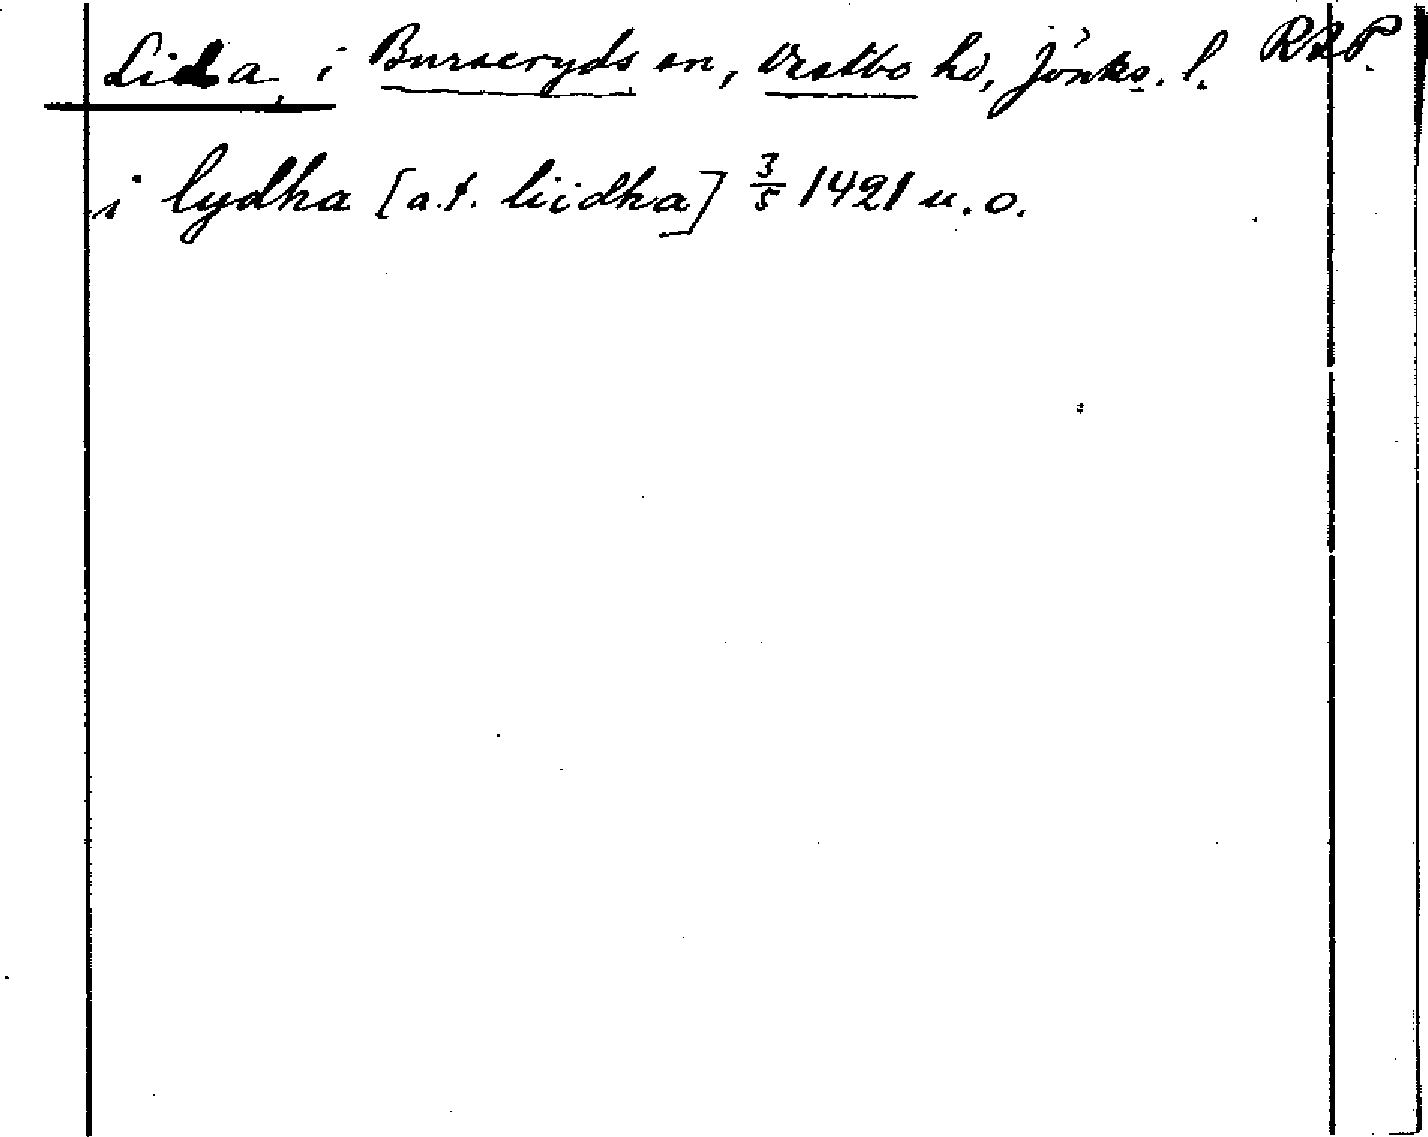 Lida, i Burseryds sn, Västbo hd, Jönks. l. RAP.
i lydha [a.t. liidha] 3/5 1421 u.o.